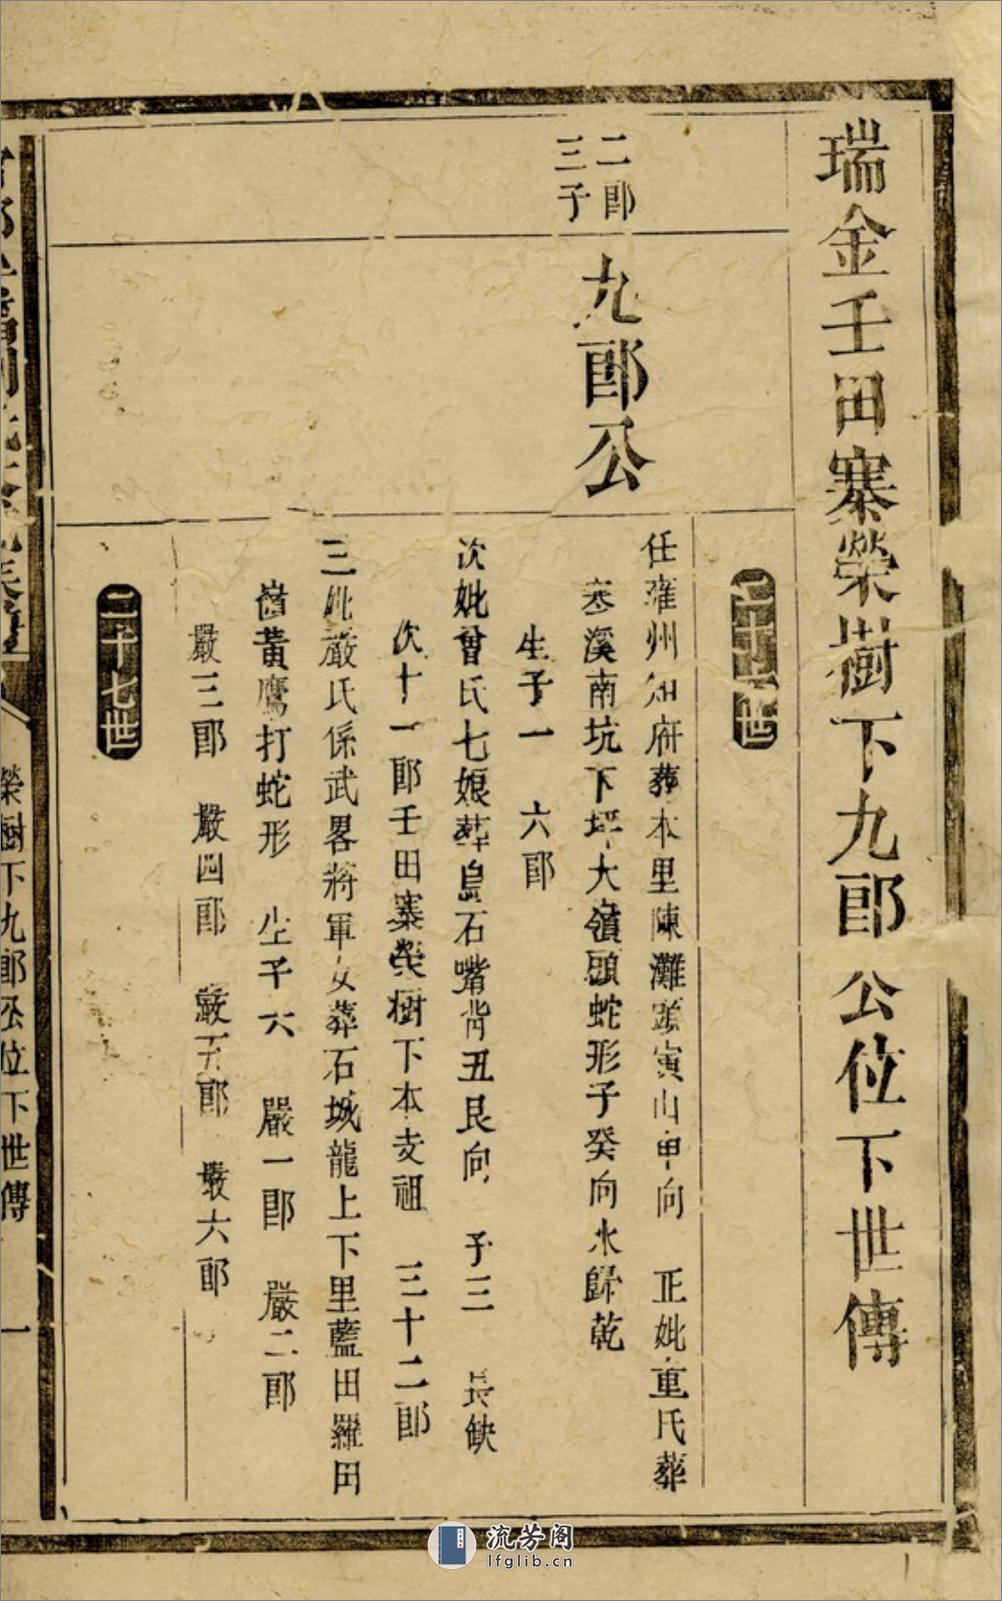 瑞金壬田寨榮樹下九郎公位下世傳
二十六世
二郎
三子
九郎公
任雍州知府葬本里陳灘𨃚寅山申向　正妣童氏葬
寒溪南坑下坪大嶺頭蛇形子癸向水歸乾
生子一　六郎
次妣曾氏七娘葬島石嘴背丑艮向　子三　長缺
次十一郎壬田寨榮樹下本支祖　三十二郎
三妣嚴氏係武畧將軍女葬石城龍上下里藍田羅田
嶺黃鷹打蛇形　生子六　嚴一郎　嚴二郎
嚴三郎　嚴四郎　嚴五郎　嚴六郎
二十七世
榮樹下九郎公位下世傳　一
流芳阁
lfglib.cn